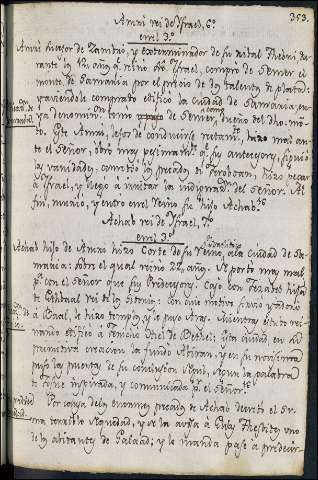 353.
Amri rei de Ysrael, 6.º
en el 3.º
Amri sucesor de Zambri, y exterminador de su rival Thebni du-
rante los 12 años q.e reinó en Ysrael, compró de Semer el
monte de Samaria por el precio de dos talentos de plata:
haviendole comprado edifico la ciudad de Samaria, en
ya denomin. tomó de Semer, dueño del dho. mon-
te. Este Amri, lejos de conducirse rectam.te hizo mal an-
te el Señor, obró muy pesimam.te q.e sus antecesores, siguió
las vanidades, cometió los pecados de Jeroboan, hizo pecar
á Ysrael, y llegó a irritar las indignac.s del Señor. Al
fin, murió, y entró en el Reino su hijo Achab.
Achab rei de Ysrael, 7.º
en el 3.º
Achab hijo de Amri hizo Corte de su Reino, a la ciudad de Sa-
maria: sobre el qual reinó 22 años. Se portó muy mal
p.a con el Señor que sus Predecesores. Casó con Jezabel hija
de Ethbaal rei de los Sidonios: Con este motivo sirvió y adoró
á Baal, le hizo templo, y le puso Aras. Mientras este rei rei-
nando edificó a Jericó Hiel de Bethel: Esta ciudad, en su
primitiva creacion la fundó Abiran, y en su
puso las puertas de su conclusion Segub, segun la palabra
q.e fue inspirada, y comunicada p.r el Señor.
Por causa de los enormes pecados de Achab decretó el Sr.
una terrible sequedad, y se la avisa á Elias Thesbites uno
de los abitantes de Galaad; y le manda pase a predecir-